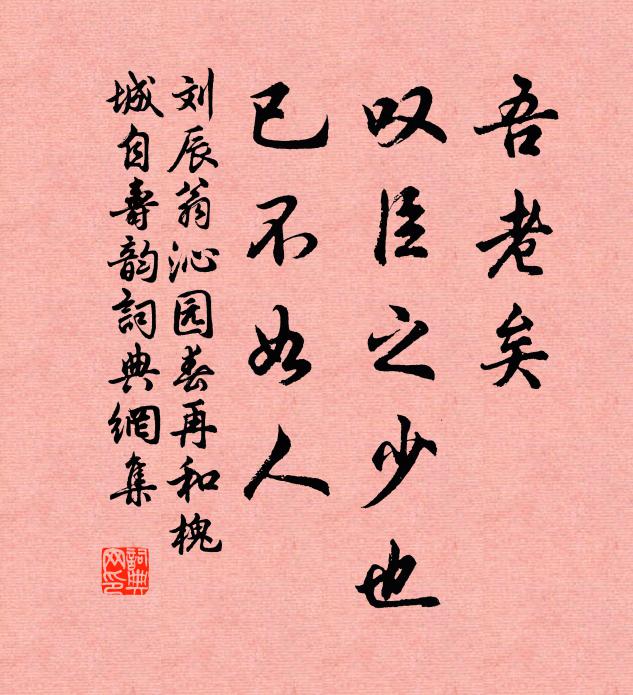 吾老矣
叹臣之少也
已不如人
刘辰翁沁园春再和槐
城自寿韵詞典網集
詞典
网印